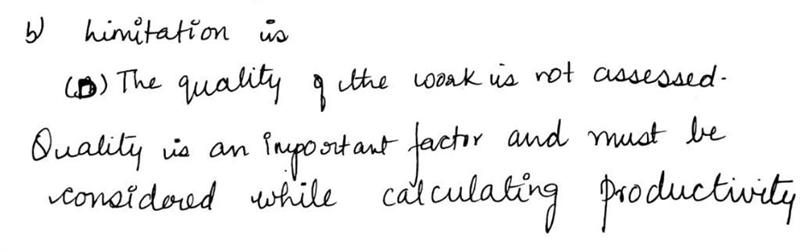 b) Limitation is
(D) The quality of the work is not assessed.
Quality is an important factor and must be
considered while calculating productivity